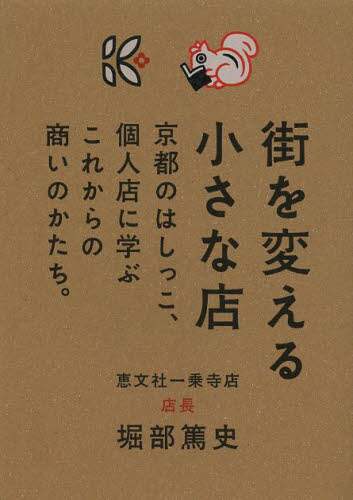 街を変える
小さな店
京都のはしっこ、
個人店に学ぶ
これからの
商いのかたち。
恵文社一乗寺店
店長
堀部篤史